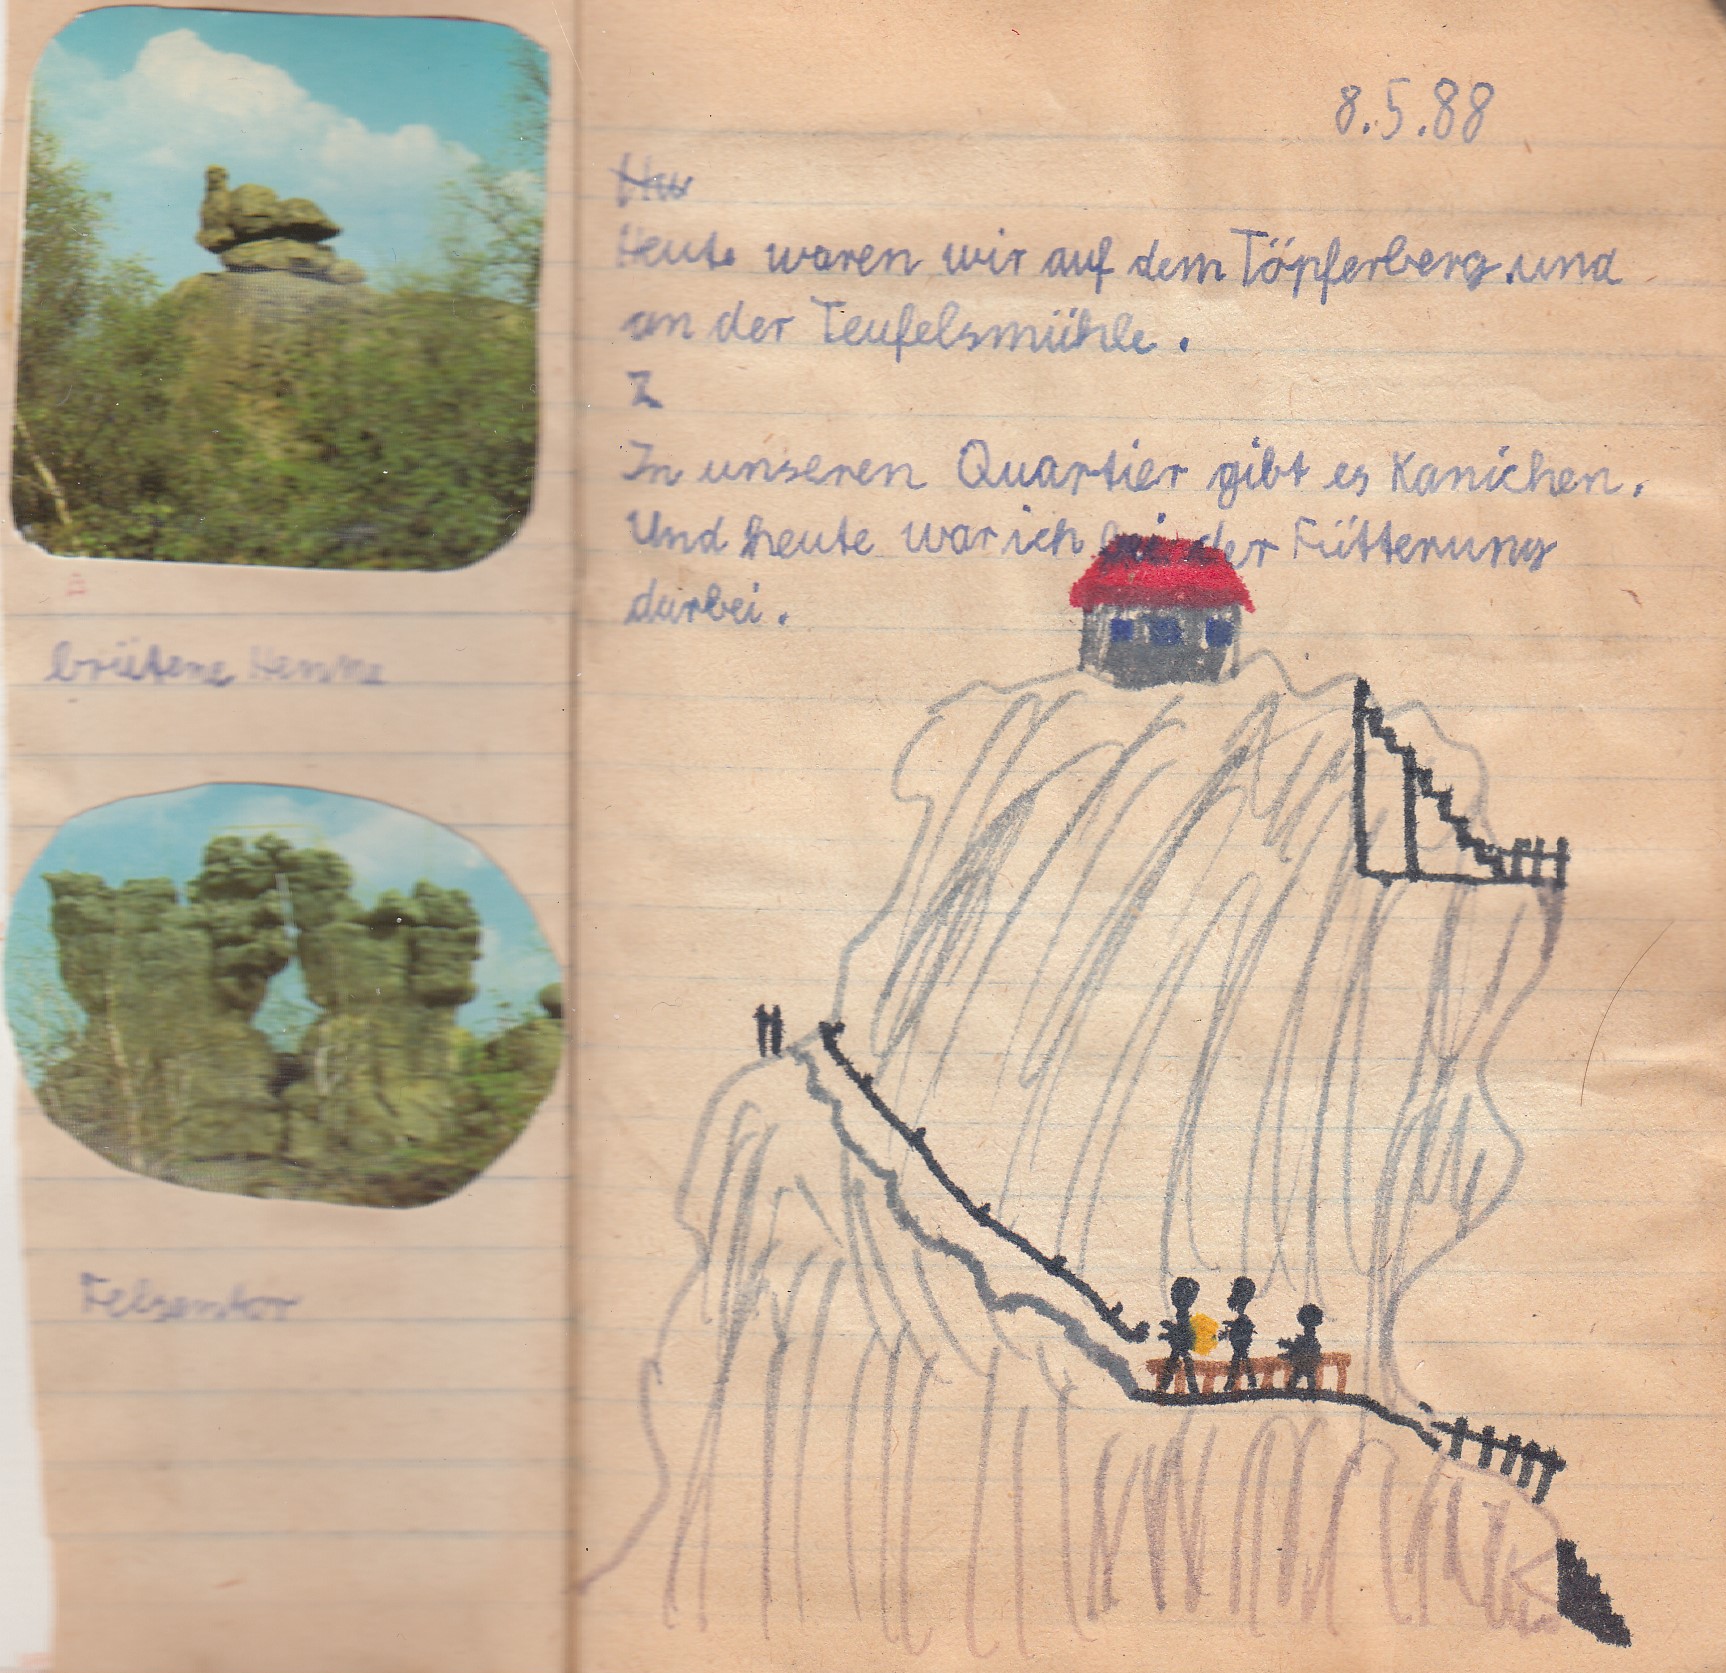 brütene Henne
Felsentor
8.5.88
Heute waren wir auf dem Töpferberg und
an der Teufelsmühle.
Z
In unseren Quartier gibt es Kanichen.
Und heute war ich bei der Fütterung
darbei.